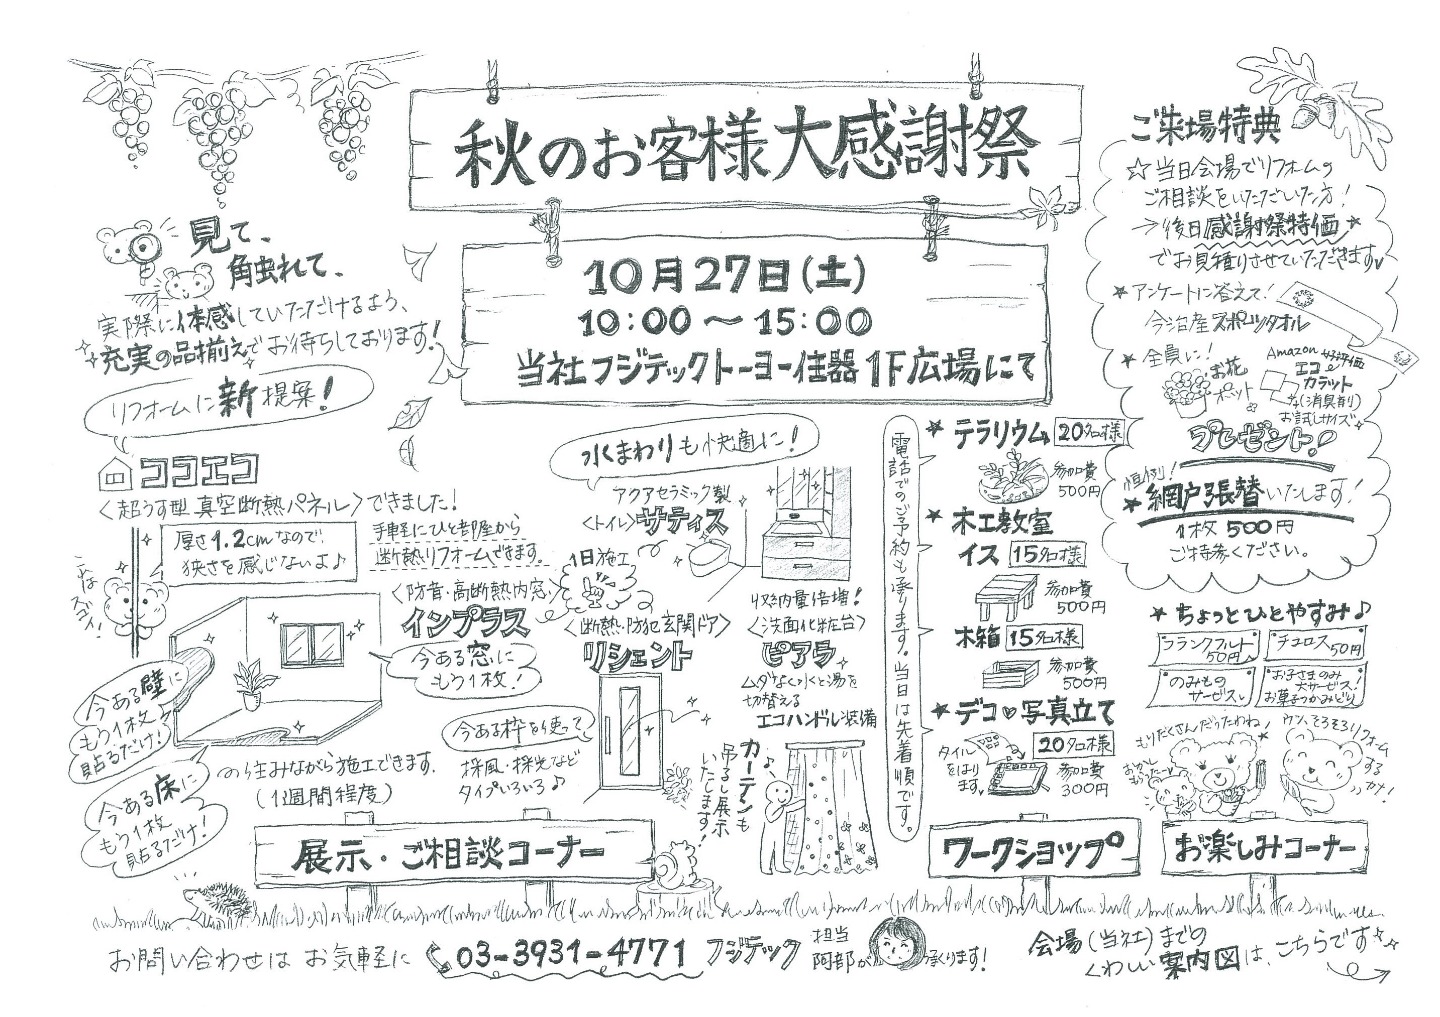 秋のお客様大感謝祭
10月27日(土)
10:00〜15:00
当社フジテックトーヨー住器1F広場にて
見て、
触れて、
実際に体感していただけるよう、
充実の品揃えでお待ちしております!
リフォームに新提案!
ココエコ
〈超うす型 真空断熱パネル〉できました!
厚さ1.2cmなので
狭さを感じないよ♪
手軽にひと部屋から
断熱リフォームできます。
こいつはスゴイ!
〈防音・高断熱内窓〉
インプラス
今ある窓に
もう1枚!
今ある壁に
もう1枚
貼るだけ!
今ある床に
もう1枚
貼るだけ!
住みながら施工できます。
(1週間程度)
水まわりも快適に!
アクアセラミック製
〈トイレ〉サティス
1日施工
〈断熱・防犯玄関ドア〉
リシェント
今ある枠を使って
採風・採光など
タイプいろいろ♪
収納量倍増!
〈洗面化粧台〉
ピアラ
ムダなく水と湯を
切替える
エコハンドル装備
カーテンも
吊るし展示
いたします!
展示・ご相談コーナー
電話でのご予約も承ります。当日は先着順です。
★テラリウム 20名様
参加費
500円
★木工教室
イス 15名様
参加費
500円
木箱 15名様
参加費
500円
★デコ♡写真立て
20名様
タイル
をはり
ます
参加費
300円
ワークショップ
ご来場特典
☆当日会場でリフォームの
ご相談をいただいた方!
→後日感謝祭特価★
でお見積りさせていただきます
★アンケートに答えて!
今治産スポーツタオル
★全員に!
お花
ポット
Amazon 好評価
エコ
カラット
(消臭剤)
お試しサイズ
プレゼント!
恒例!
★網戸張替いたします!
1枚500円
ご持参ください。
★ちょっとひとやすみ♪
フランクフルト
50円
チュロス
50円
のみもの
サービス
お子さまのみ
大サービス!
お菓子つかみどり
もりだくさんだったわね
おかし
もらったー
ウン、そろそろリフォーム
するかナ!
お楽しみコーナー
お問い合わせは お気軽に 03-3931-4771 フジテック
担当
阿部が承ります!
会場(当社)までの
くわしい案内図は、こちらです